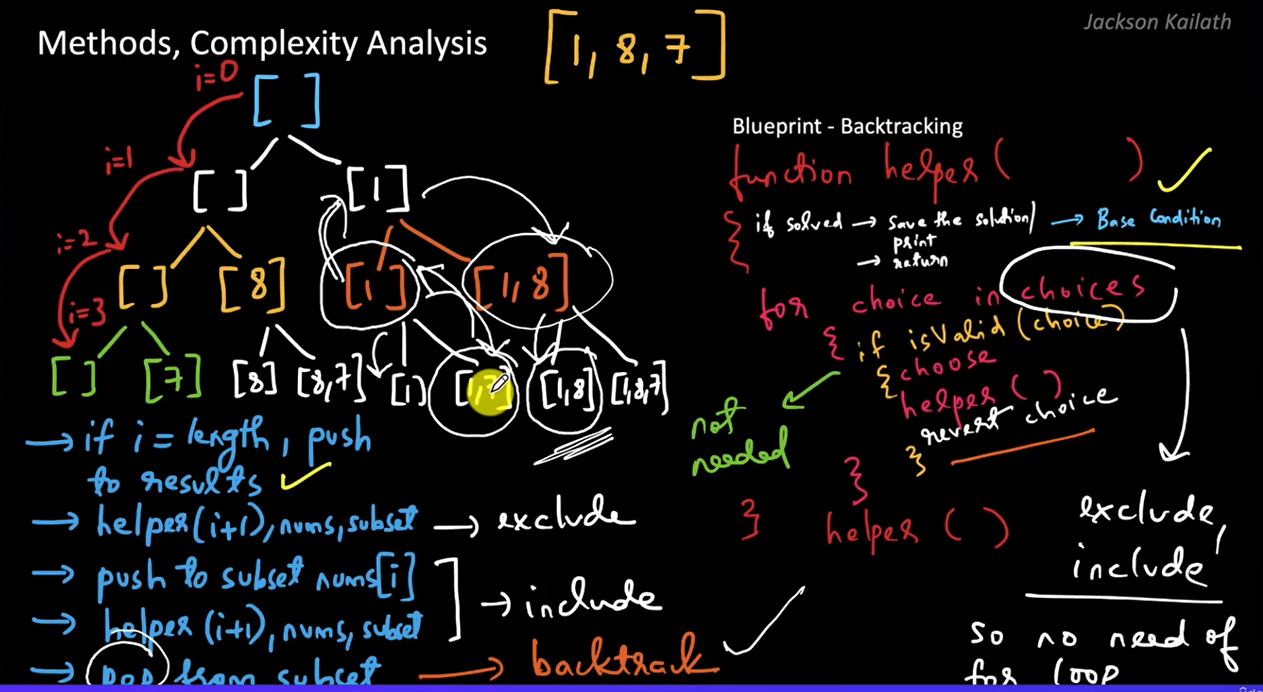 Jackson Kailath
Methods, Complexity Analysis
[1, 8, 7]
i=0
[ ]
i=1
[ ]
[1]
i=2
[ ]
[8]
[1]
[1,8]
i=3
[ ]
[7]
[8]
[8,7]
[1]
[1,8]
[1,8,7]
→ if i = length, push
to results
→ helper(i+1), nums, subset → exclude
→ push to subset nums[i]
→ include
→ helper (i+1), nums, subset
→ pop from subset → backtrack
Blueprint - Backtracking
function helper( )
{ if solved → save the solution/ → Base Condition
print
→ return
for choice in choices
{ if isValid(choice)
{ choose
helper( )
revert choice
}
}
} helper ( )
not
needed
exclude,
include
so no need of
for loop